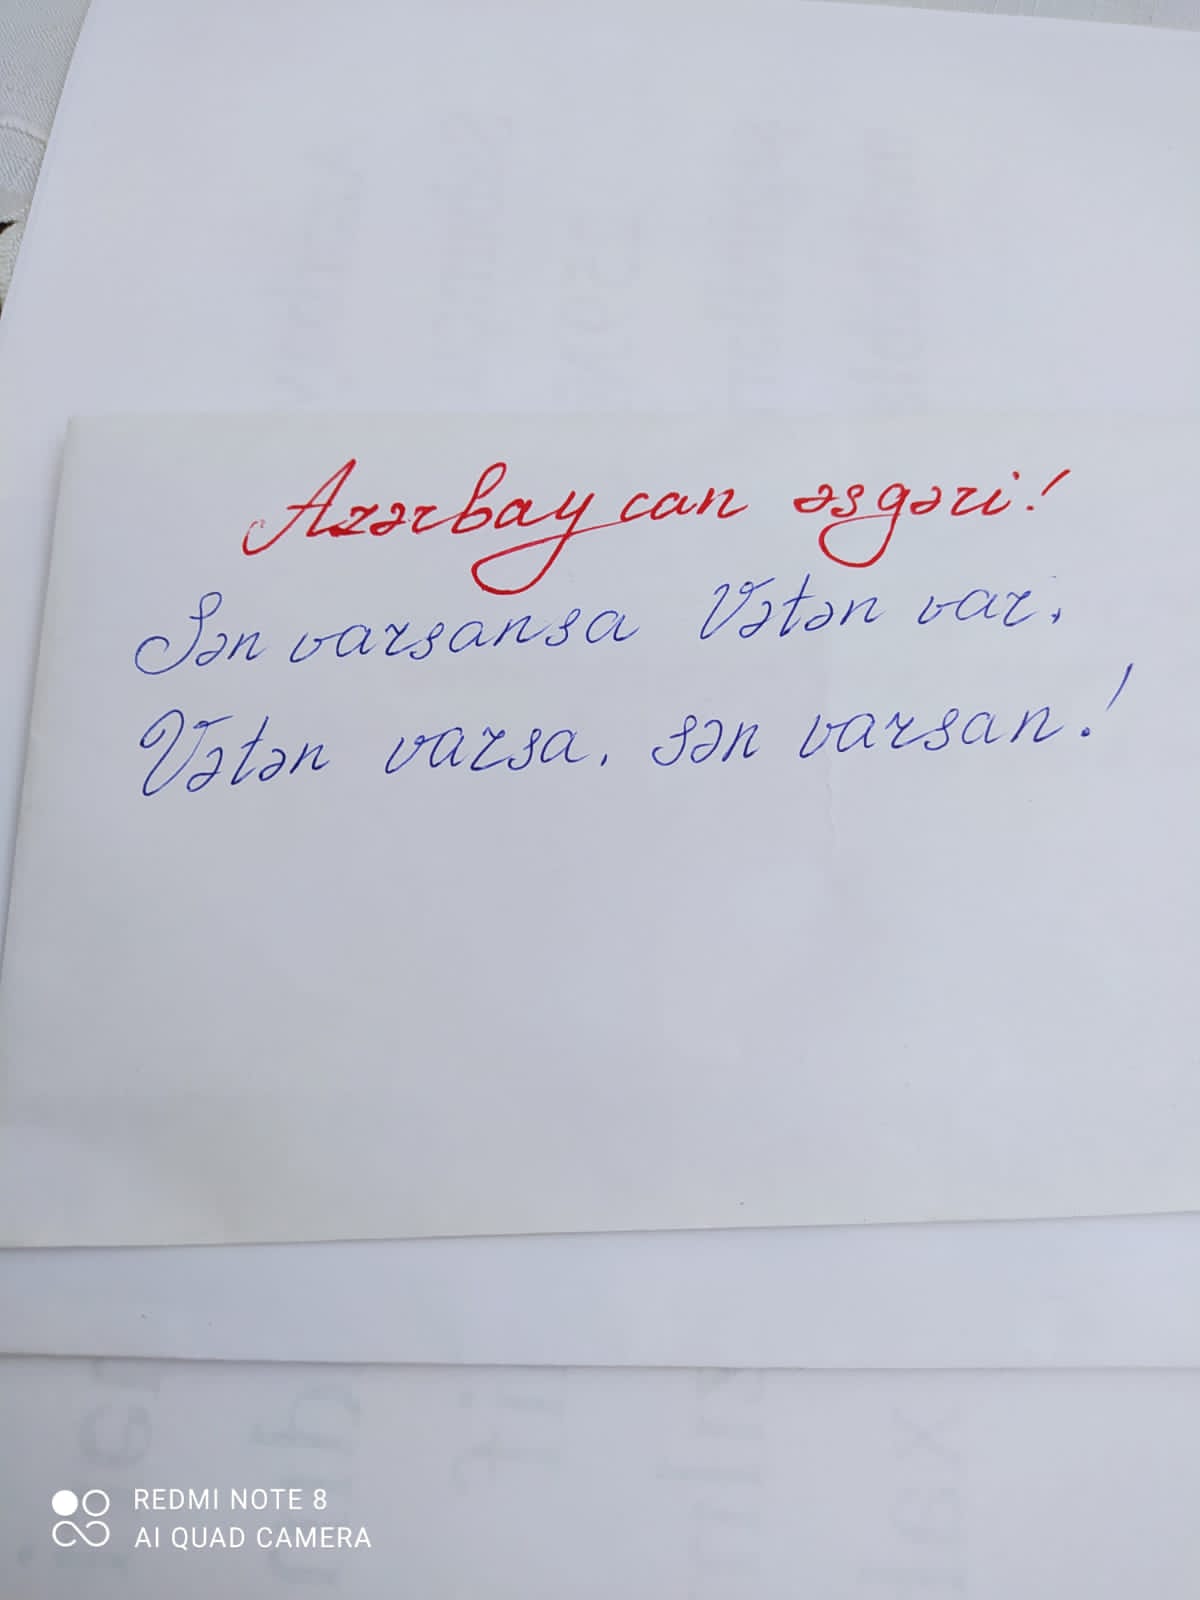 Azərbaycan əsgəri!
Sən varsansa Vətən var,
Vətən varsa, sən varsan!
REDMI NOTE 8
AI QUAD CAMERA